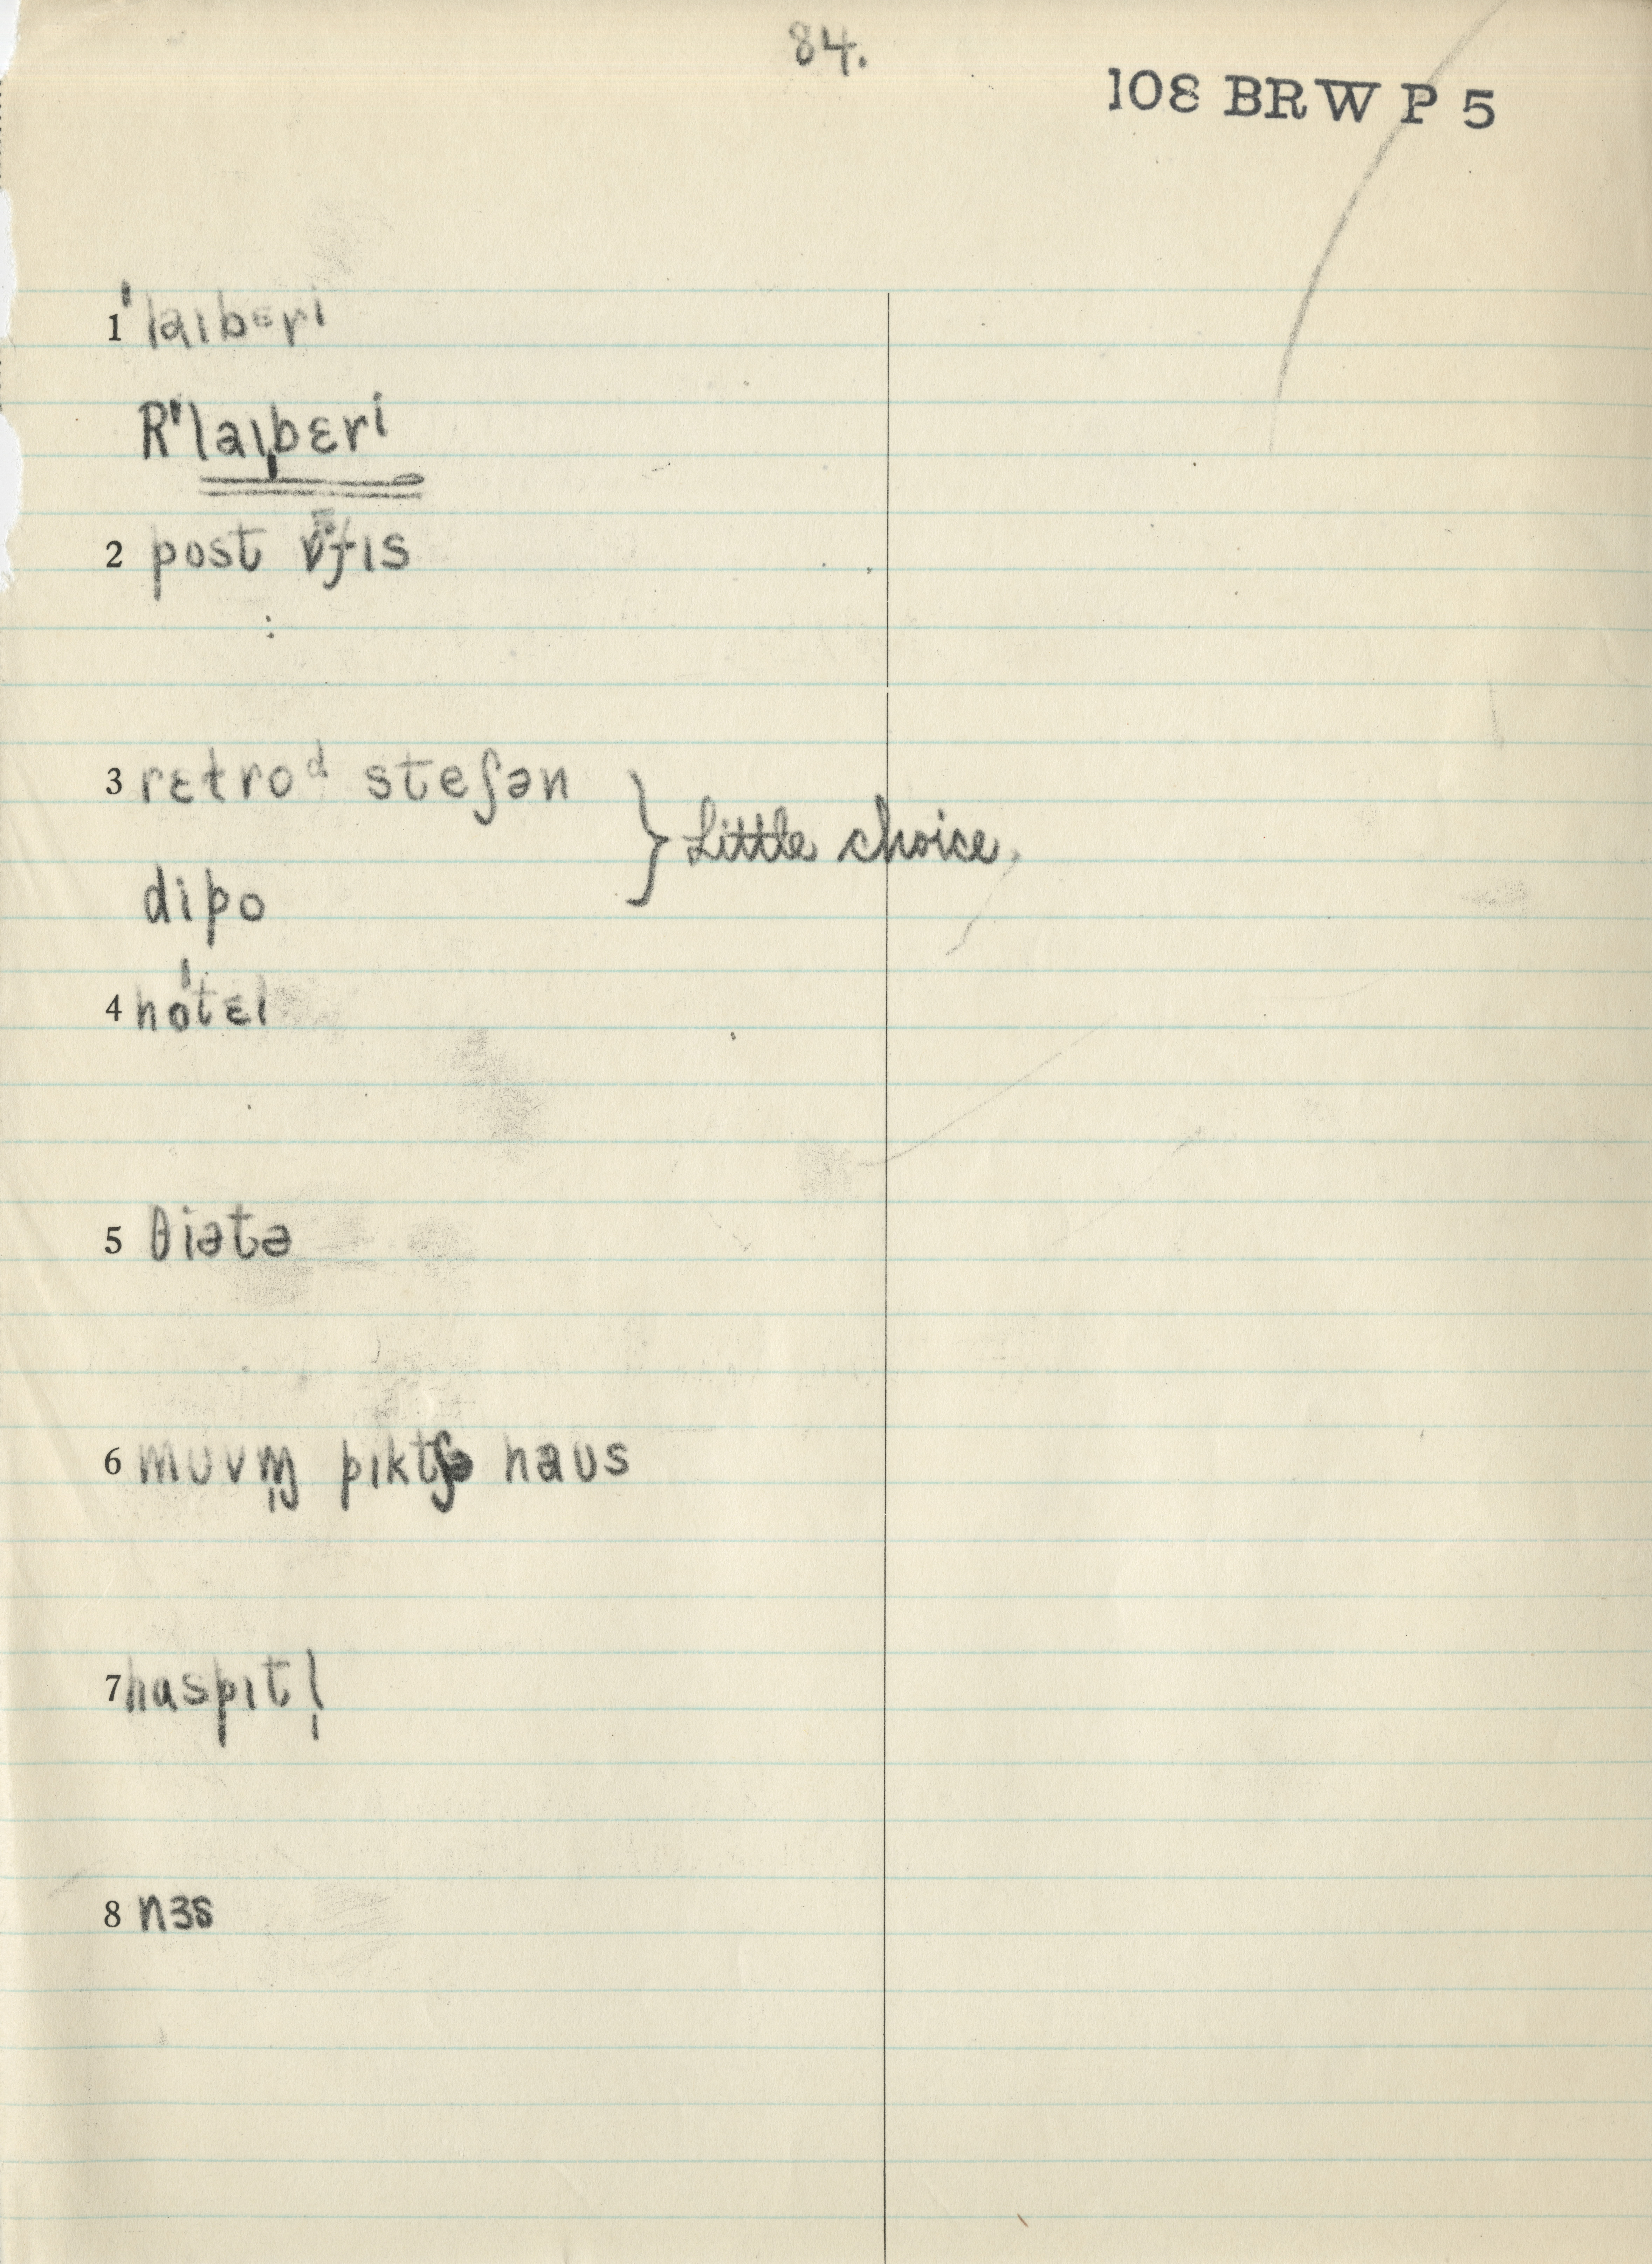 84.
108 BRW P 5
1 ˈlaɪbɛri
R ˈlaɪˌbɛri
2 post ɒfɪs
3 rɛɫroᵈ steʃən
} Little choice.
dipo
4 hoˈtɛl
5 θiətə
6 muvɪŋ pɪktʃə haus
7 haspɪtl̩
8 nɜs